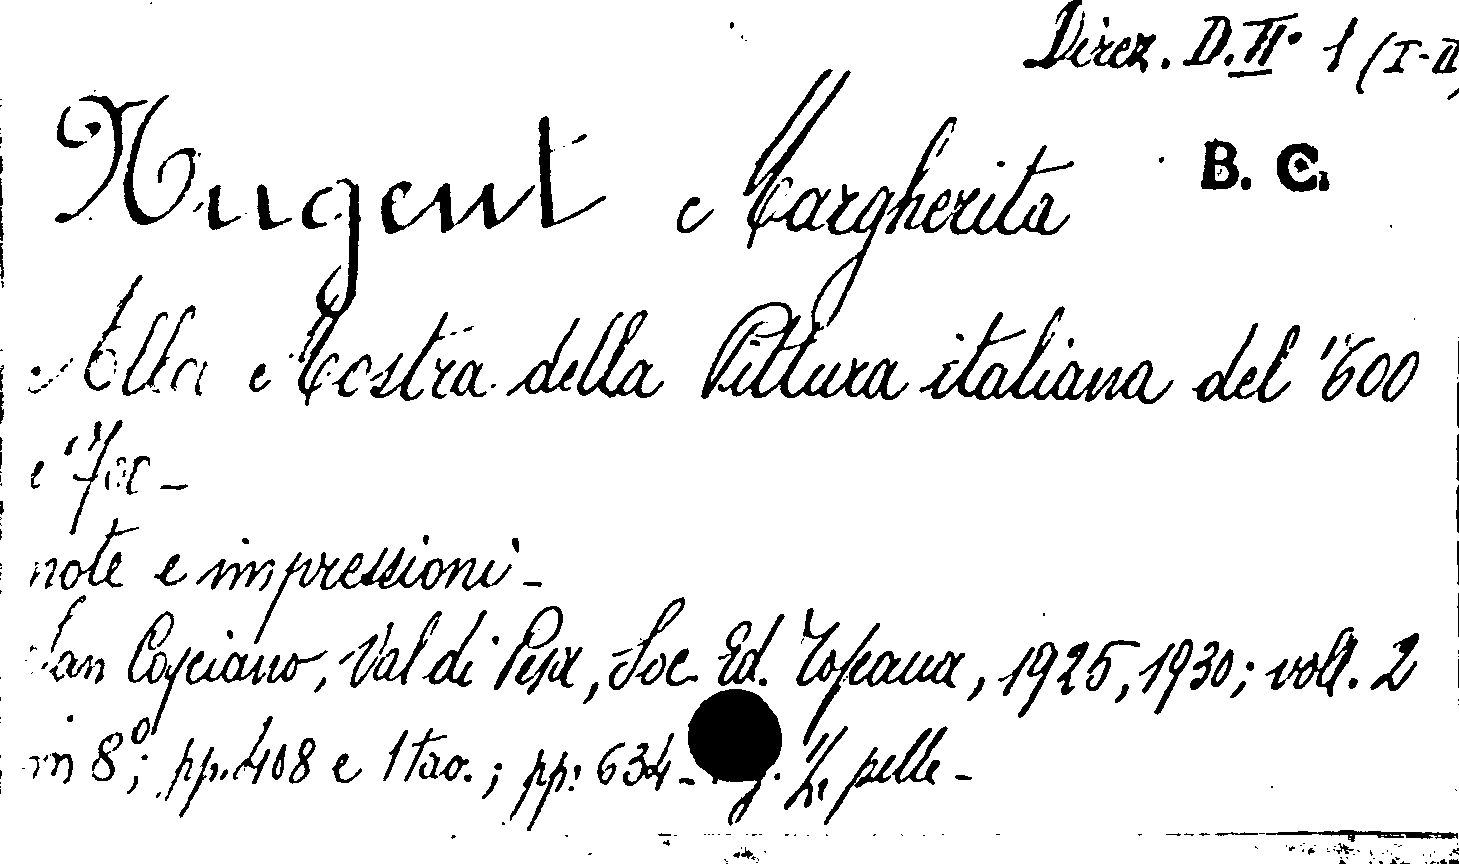 Direz. D. II. 1 (I-II)
B. C.
Nugent Margherita
Alla Mostra della Pittura italiana del '600
e '700 -
note e impressioni -
San Casciano, Val di Pesa, Soc. Ed. Toscana, 1925, 1930; voll. 2
in 8°; pp. 408 e 1 tav.; pp. 634 - ½ pelle -